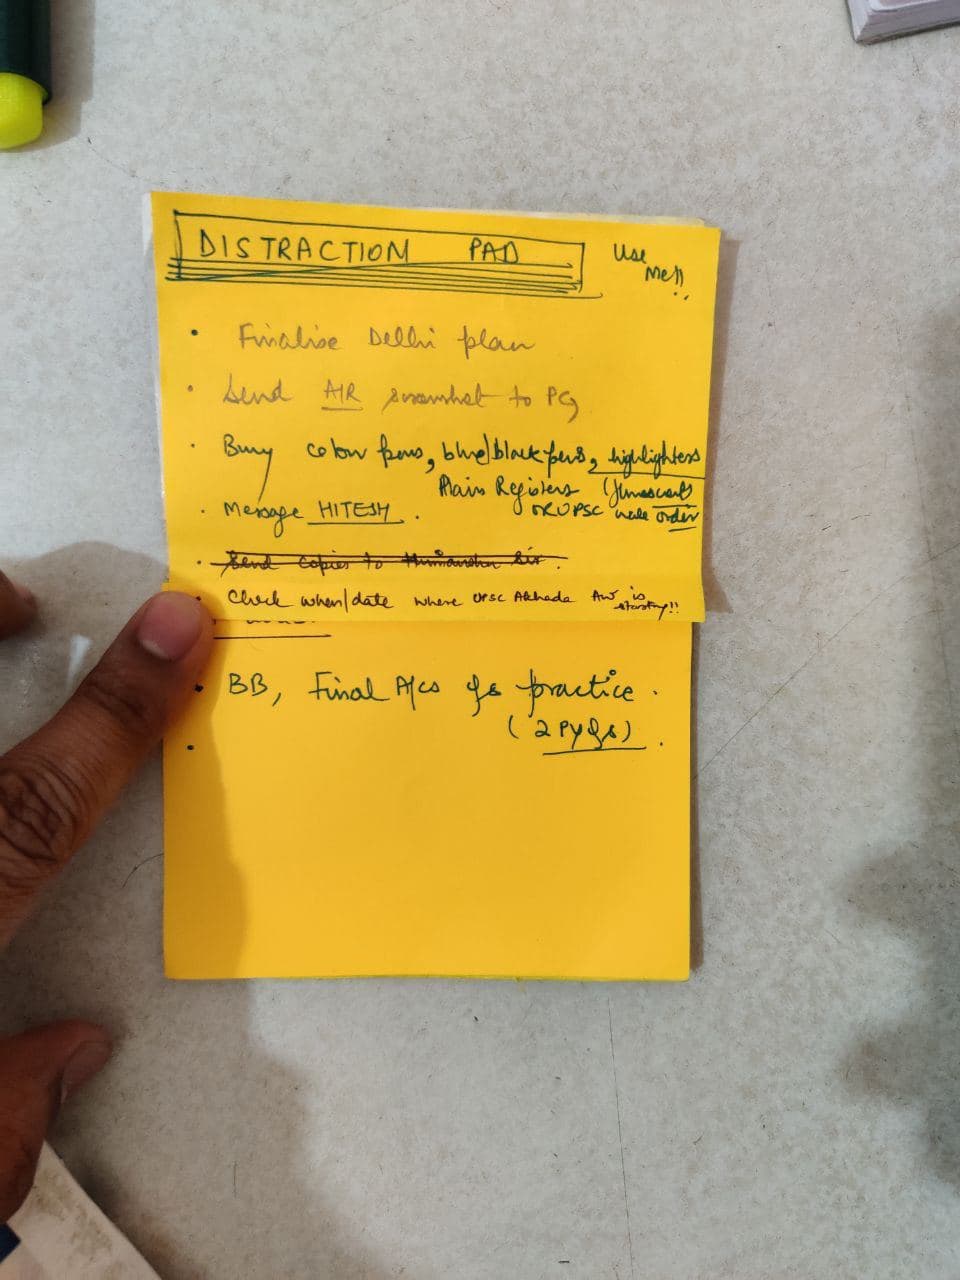 DISTRACTION PAD
Use
Me!!
• Finalise Delhi plan
• Send AIR to PG
• Buy colour pens, blue/black pens, highlighters
Plain Registers
OR UPSC wale order
• Message HITESH.
• Send copies to Himanshu Sir.
• Check when/date where UPSC Akhada AW is
starting!!
• BB, Final A/cs Qs practice.
(2 PYQs).
•